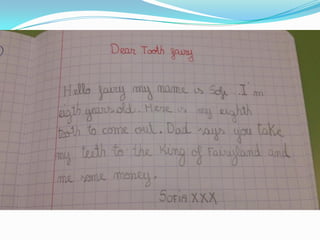 Dear Tooth fairy
Hello fairy my name is Sofi. I'm
eigth years old. Here is my eighth
tooth to come out. Dad says you take
my teeth to the King of Fairyland and
me some money.
Sofia XXX